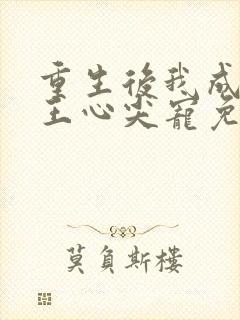 重生後我成
王心尖寵免
莫負斯樓